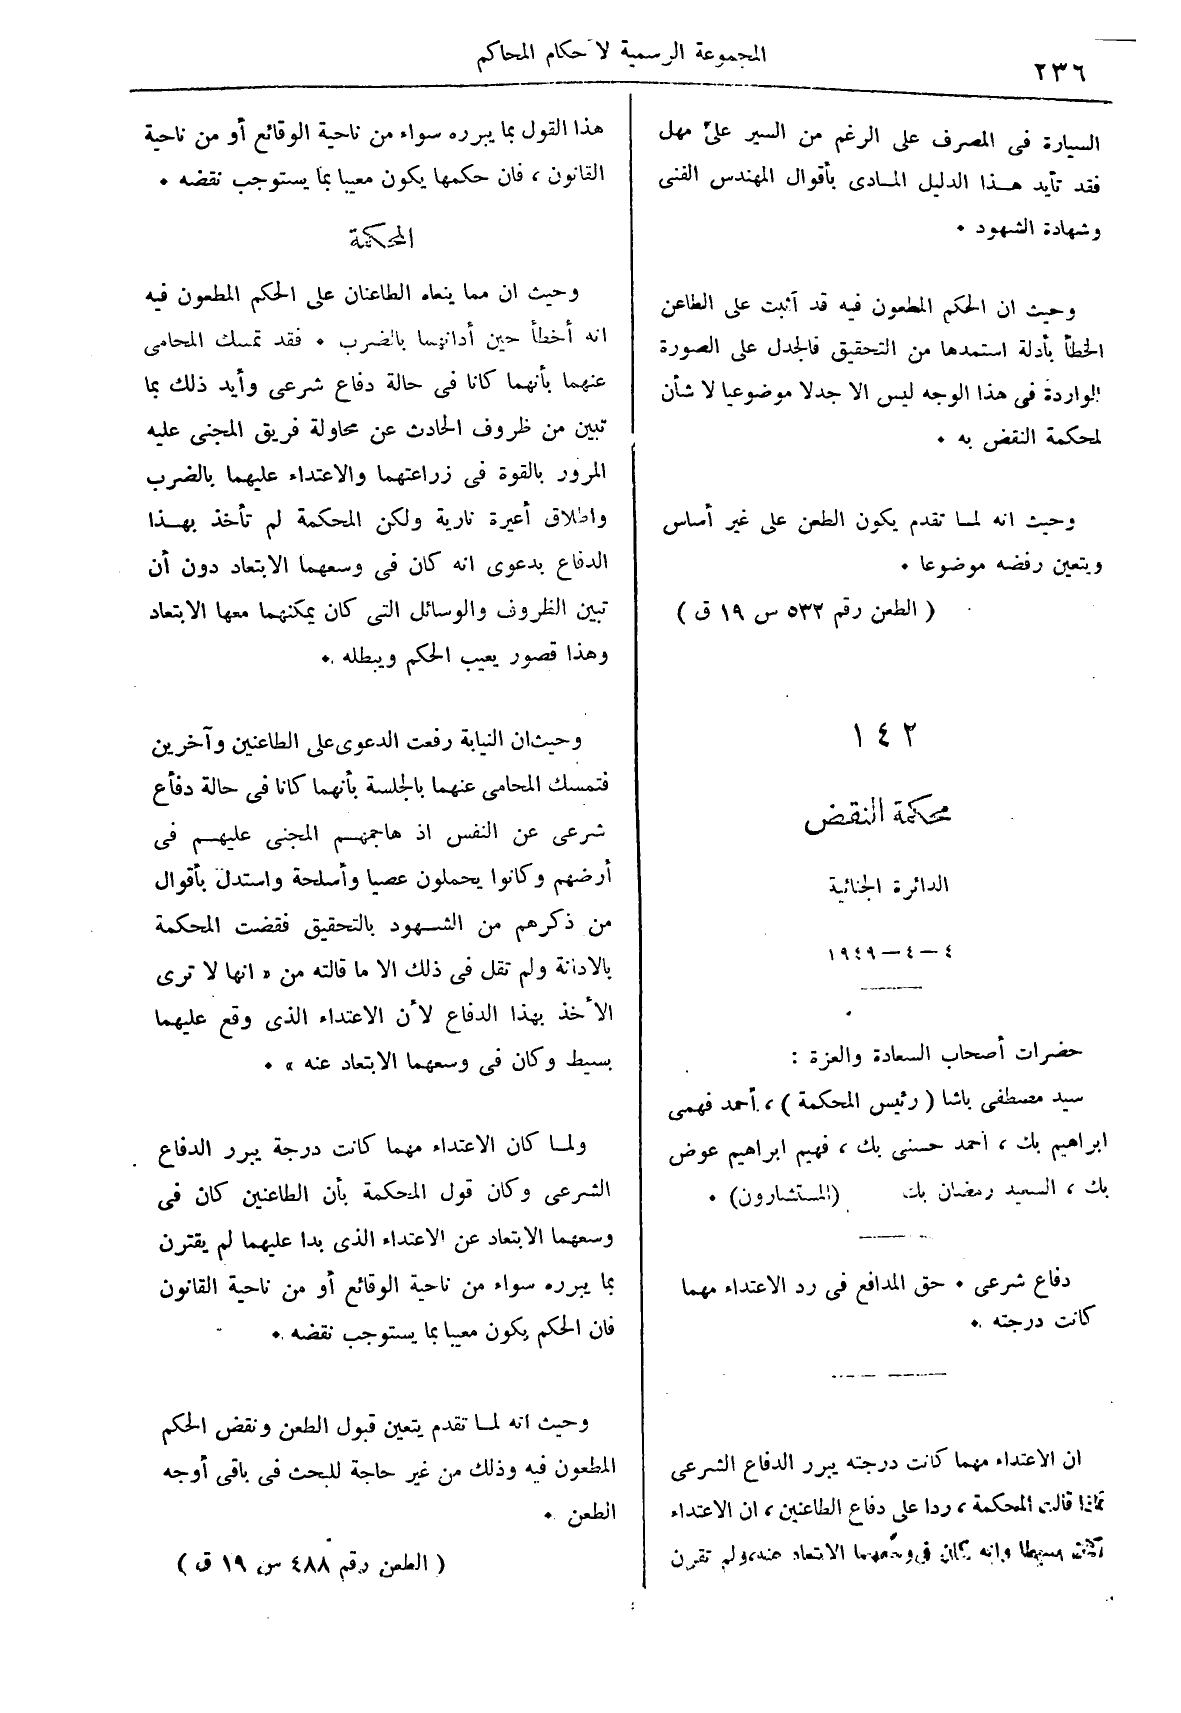 المجموعة الرسمية لأحكام المحاكم
٢٣٦
السيارة فى المصرف على الرغم من السير على مهل
فقد تأيد هـذا الدليل المـادى بأقوال المهندس الفنى
وشهادة الشهود ٠
وحيث ان الحكم المطعون فيه قد أثبت على الطاعن
الخطأ بأدلة استمدها من التحقيق فالجدل على الصورة
الواردة فى هذا الوجه ليس الا جدلا موضوعيا لا شأن
لمحكمة النقض به ٠
وحيث انه لمـا تقدم يكون الطعن على غير أساس
ويتعين رفضه موضوعا ٠
( الطعن رقم ٥٣٢ س ١٩ ق )
١٤٢
محكمة النقض
الدائرة الجنائية
٤ – ٤ – ١٩٤٩
حضرات أصحاب السعادة والعزة :
سيد مصطفى باشا ( رئيس المحكمة ) ، أحمد فهمى
ابراهيم بك ، احمد حسنى بك ، فهيم ابراهيم عوض
بك ، السعيد رمضان بك (المستشارون) ٠
دفاع شرعى ٠ حق المدافع فى رد الاعتداء مهما
كانت درجته ٠
ان الاعتداء مهما كانت درجته يبرر الدفاع الشرعى
فاذا قالت المحكمة ، ردا على دفاع الطاعنين ، ان الاعتداء
كان بسيطا وانه كان فى وسعهما الابتعاد عنه، ولم تقرن
هذا القول بما يبرره سواء من ناحية الوقائع أو من ناحية
القانون ، فان حكمها يكون معيبا بما يستوجب نقضه ٠
المحكمة
وحيث ان مما ينعاه الطاعنان على الحكم المطعون فيه
انه أخطأ حين أدانهما بالضرب ٠ فقد تمسك المحامى
عنهما بأنهما كانا فى حالة دفاع شرعى وأيد ذلك بما
تبين من ظروف الحادث عن محاولة فريق المجنى عليه
المرور بالقوة فى زراعتهما والاعتداء عليهما بالضرب
واطلاق أعيرة نارية ولكن المحكمة لم تأخذ بهـذا
الدفاع بدعوى انه كان فى وسعهما الابتعاد دون أن
تبين الظروف والوسائل التى كان يمكنهما معها الابتعاد
وهذا قصور يعيب الحكم ويبطله ٠
وحيث ان النيابة رفعت الدعوى على الطاعنين وآخرين
فتمسك المحامى عنهما بالجلسة بأنهما كانا فى حالة دفاع
شرعى عن النفس اذ هاجمهـم المجنى عليهـم فى
أرضهم وكانوا يحملون عصيا وأسلحة واستدل بأقوال
من ذكرهم من الشـهود بالتحقيق فقضت المحكمة
بالادانة ولم تقل فى ذلك الا ما قالته من « انها لا ترى
الأخذ بهذا الدفاع لأن الاعتداء الذى وقع عليهما
بسيط وكان فى وسعهما الابتعاد عنه » ٠
ولمـا كان الاعتداء مهما كانت درجة يبرر الدفاع
الشرعى وكان قول المحكمة بأن الطاعنين كان فى
وسعهما الابتعاد عن الاعتداء الذى بدا عليهما لم يقترن
بما يبرره سواء من ناحية الوقائع أو من ناحية القانون
فان الحكم يكون معيبا بما يستوجب نقضه ٠
وحيث انه لمـا تقدم يتعين قبول الطعن ونقض الحكم
المطعون فيه وذلك من غير حاجة للبحث فى باقى أوجه
الطعن ٠
( الطعن رقم ٤٨٨ س ١٩ ق )